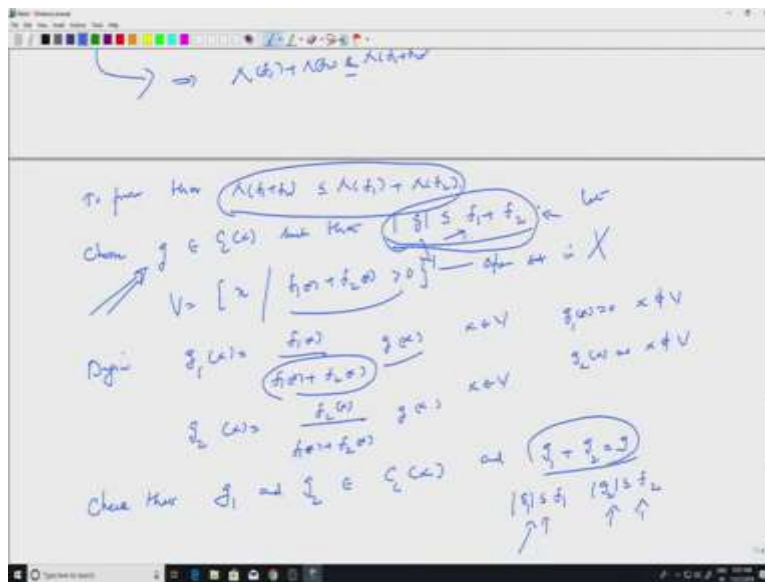 ⇒ Λ(f₁)+Λ(f₂) ≤ Λ(f₁+f₂)
To prove that Λ(f₁+f₂) ≤ Λ(f₁)+Λ(f₂)
Choose g ∈ C_c(X) such that |g| ≤ f₁+f₂ let
V = {x | f₁(x)+f₂(x) > 0} — open set in X
Define g₁(x) = f₁(x) / (f₁(x)+f₂(x)) g(x) x∈V g₁(x)=0 x∉V
g₂(x) = f₂(x) / (f₁(x)+f₂(x)) g(x) x∈V g₂(x)=0 x∉V
Check that g₁ and g₂ ∈ C_c(X) and g₁+g₂=g
|g₁| ≤ f₁ |g₂| ≤ f₂